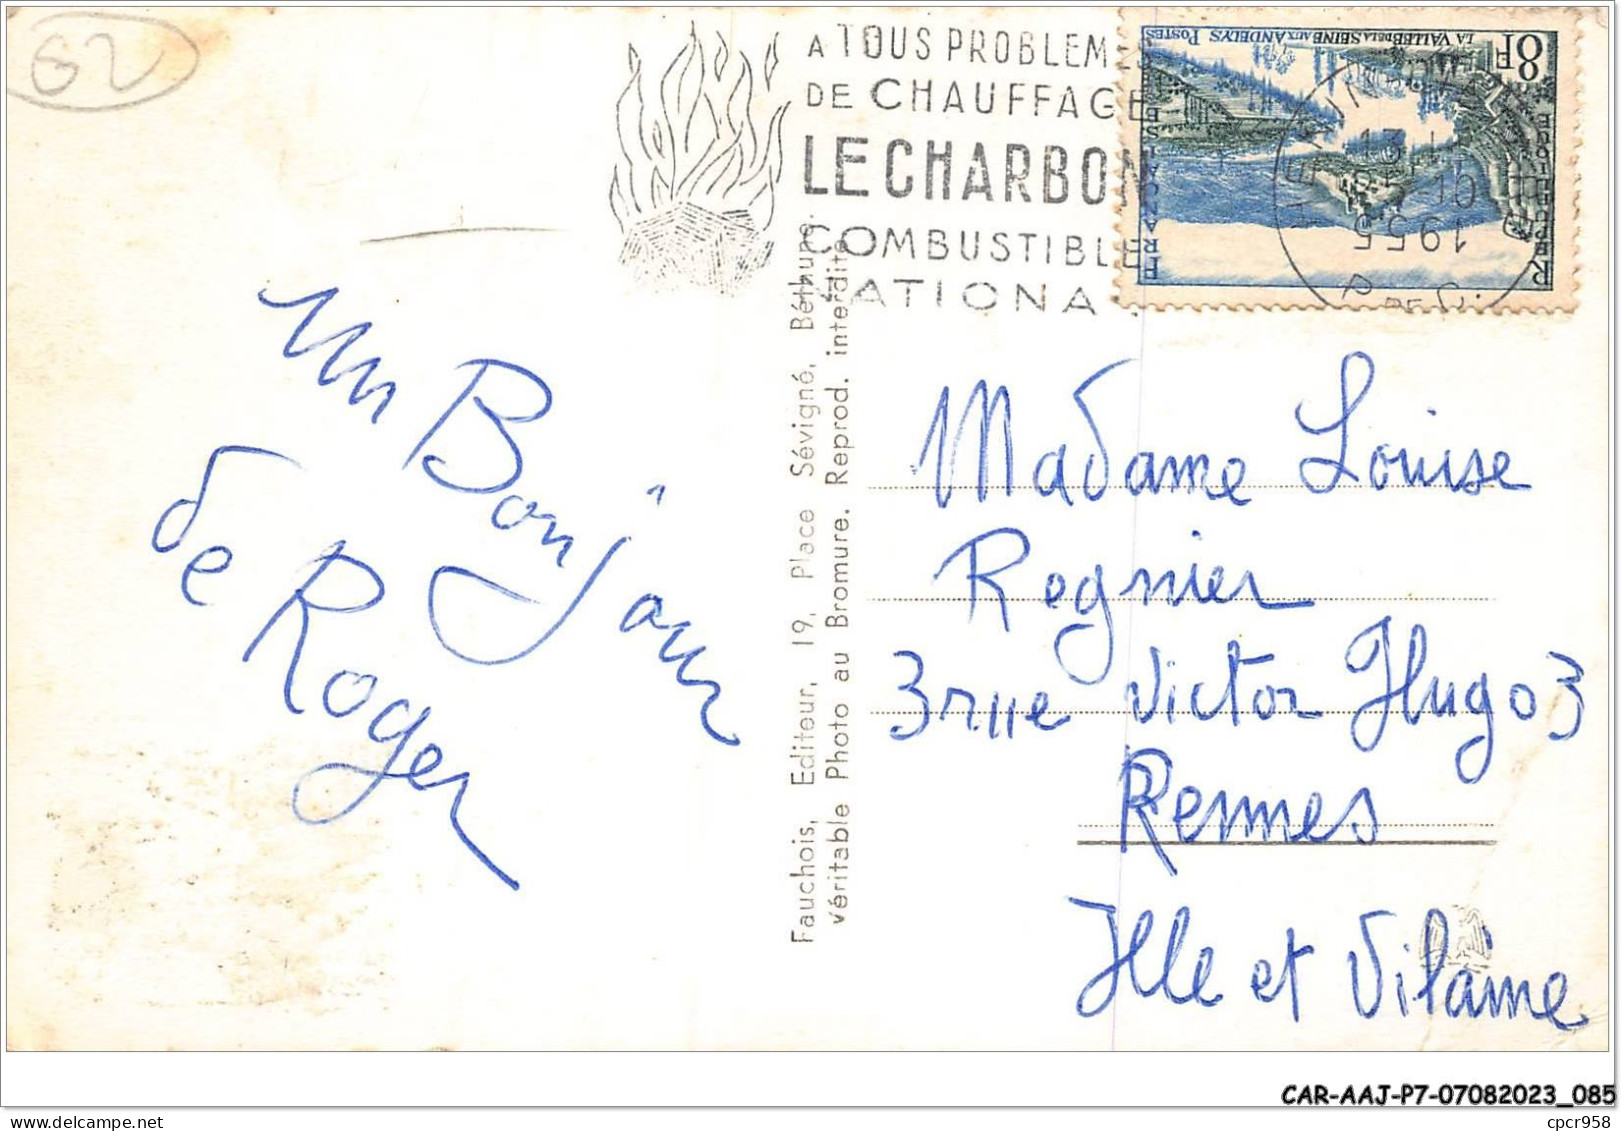 62
A TOUS PROBLEMES
DE CHAUFFAGE
LE CHARBON
COMBUSTIBLE
NATIONAL
8F
LA VALLEE DE LA SEINE AUX ANDELYS POSTES
REPUBLIQUE
FRANÇAISE
13 H
10
1955
P. DE C.
un Bonjour
de Roger
Fauchois, Editeur, 19, Place Sévigné, Béthune.
véritable Photo au Bromure. Reprod. interdite
Madame Louise
Regnier
3 rue Victor Hugo 3
Rennes
Ille et Vilaine
CAR-AAJ-P7-07082023_085
cpcr958